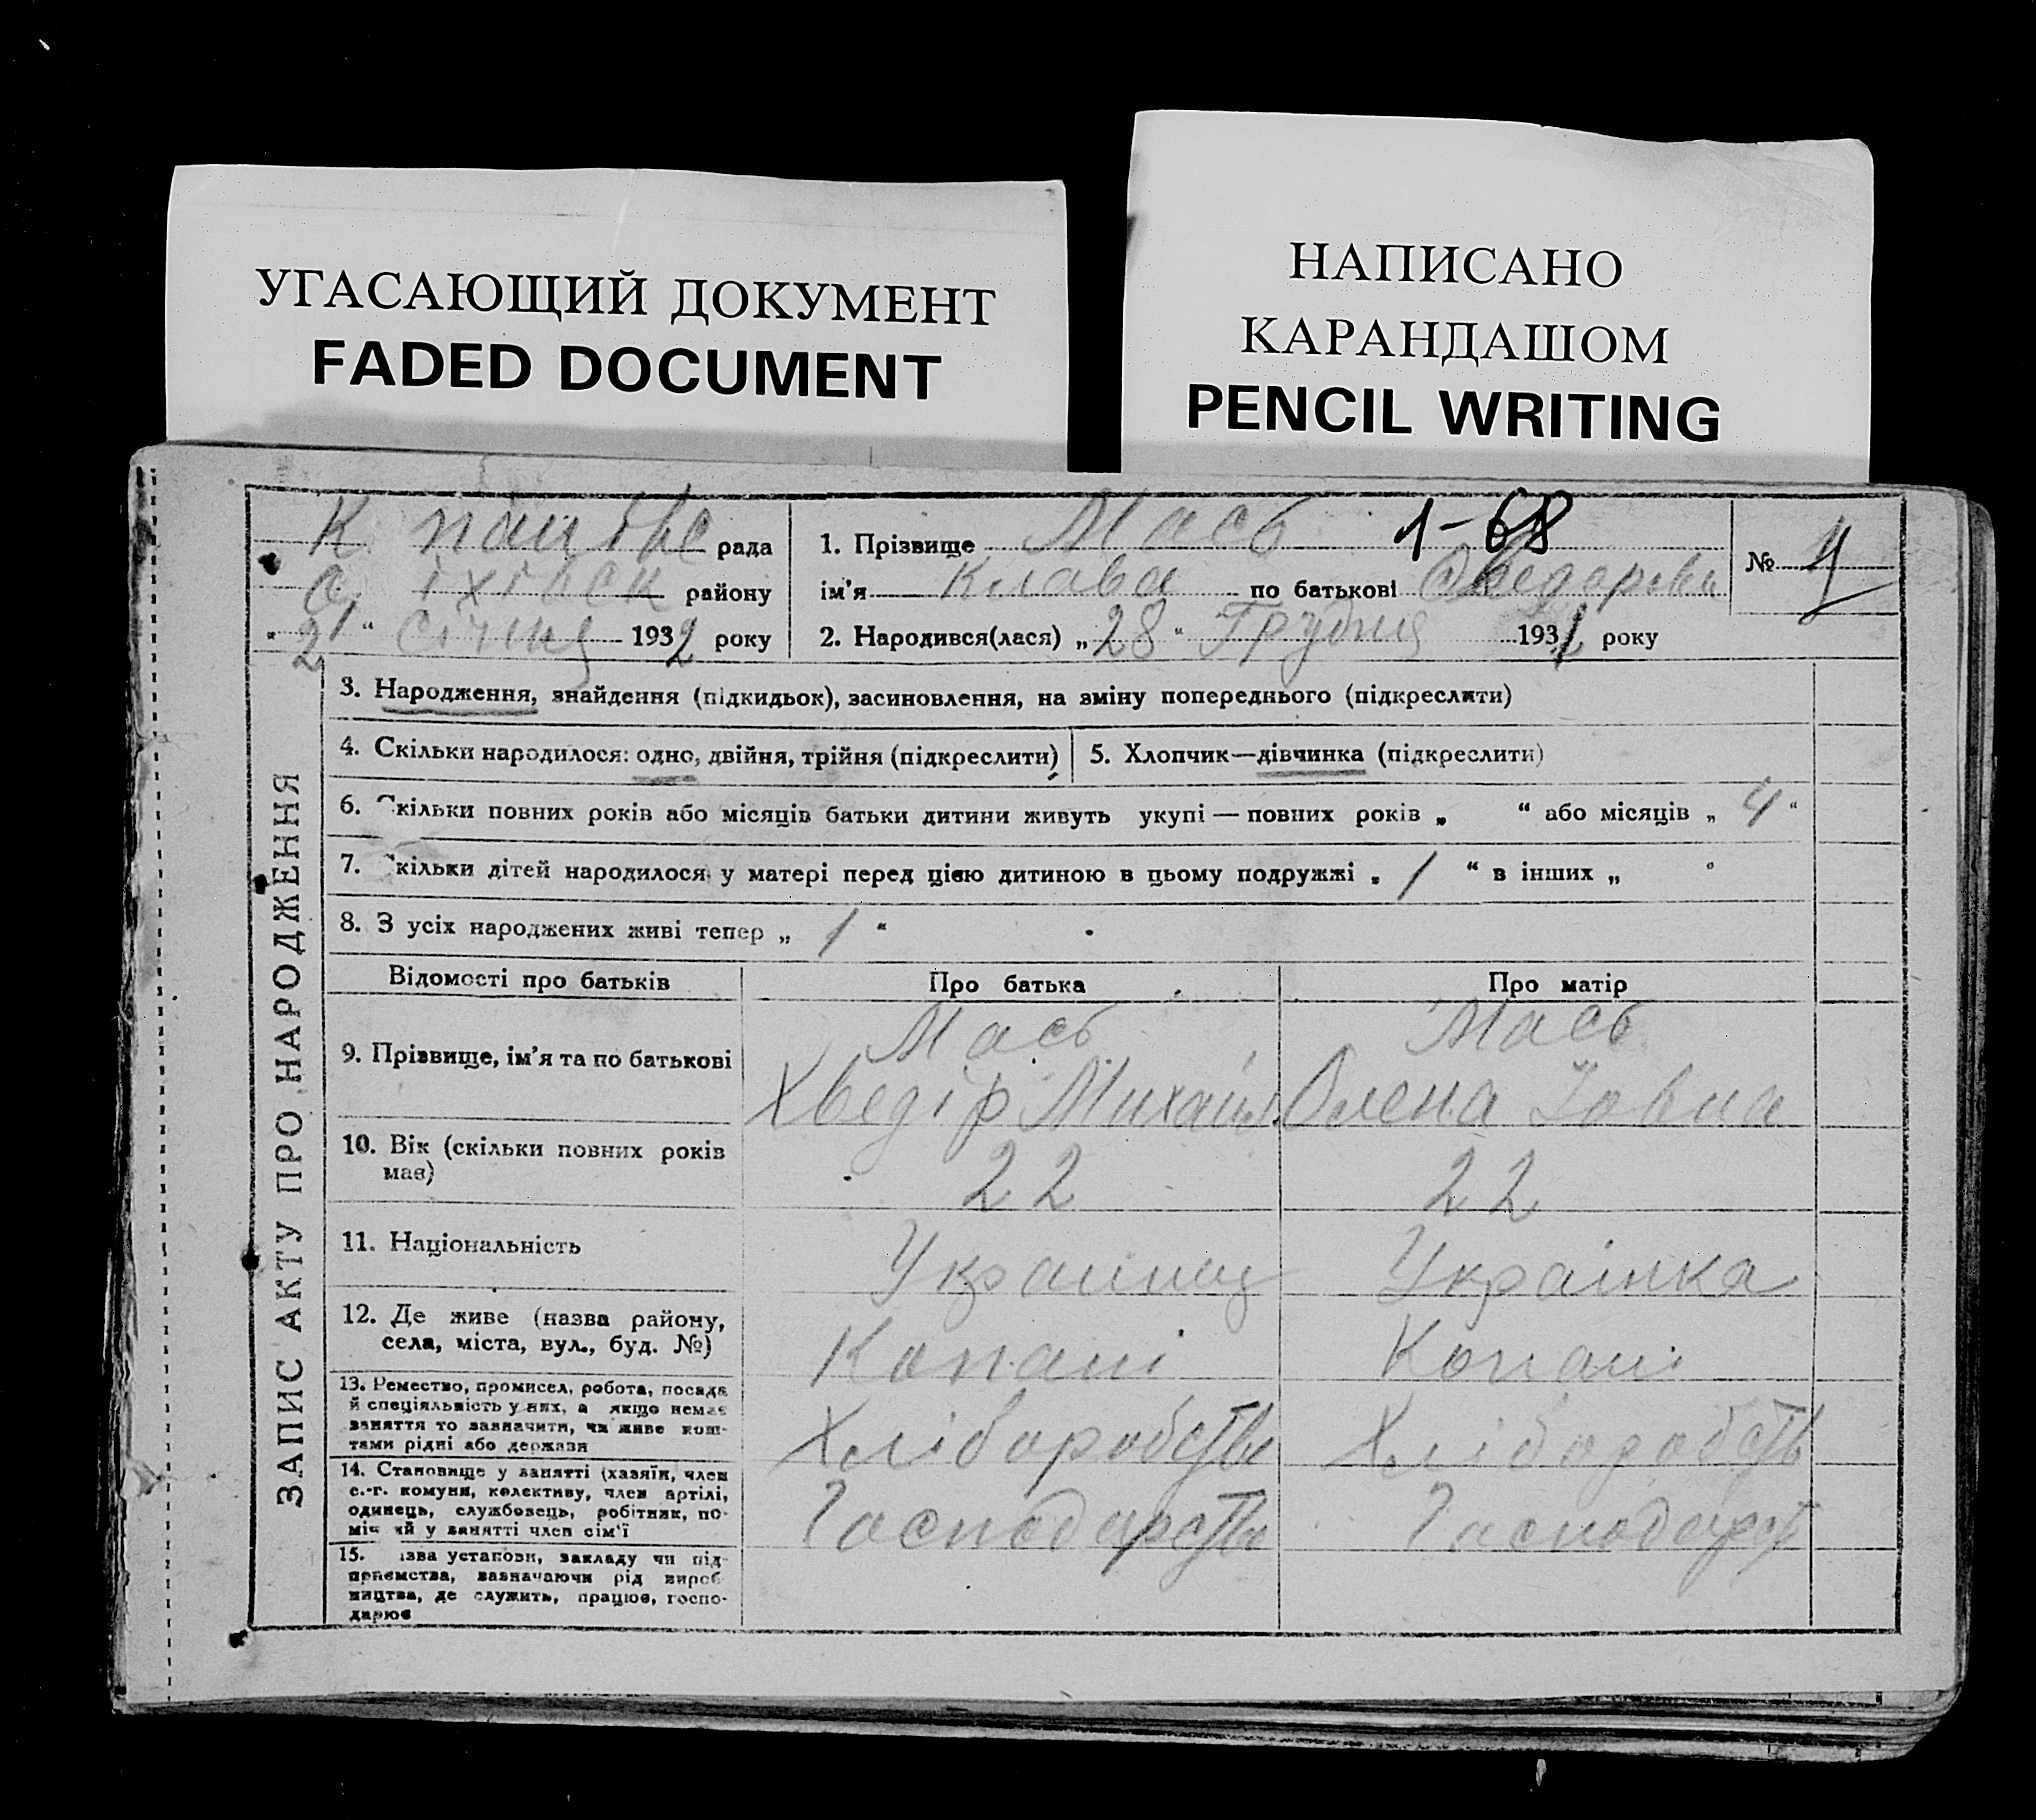 УГАСАЮЩИЙ ДОКУМЕНТ
FADED DOCUMENT
НАПИСАНО
КАРАНДАШОМ
PENCIL WRITING
К рада
району
"21" Січня 1932 року
1. Прізвище Мась 1-68
ім'я Клава по батькові
2. Народився(лася) „28" Грудня 1931 року
№ 1
ЗАПИС АКТУ ПРО НАРОДЖЕННЯ
3. Народження, знайдення (підкидьок), засиновлення, на зміну попереднього (підкреслити)
4. Скільки народилося: одно, двійня, трійня (підкреслити)
5. Хлопчик—дівчинка (підкреслити)
6. Скільки повних років або місяців батьки дитини живуть укупі — повних років „ “ або місяців „ 4 “
7. Скільки дітей народилося у матері перед цією дитиною в цьому подружжі „ 1 “ в інших „ “
8. З усіх народжених живі тепер „ 1 “
Відомості про батьків
Про батька
Про матір
9. Прізвище, ім'я та по батькові
Мась
Хведір Михайл
Мась
Олена Іовна
10. Вік (скільки повних років
має)
22
22
11. Національність
Українець
Українка
12. Де живе (назва району,
села, міста, вул., буд. №)
Копані
Копані
13. Ремество, промисел, робота, посада
й спеціяльність у них, а якщо немає
заняття то зазначити, чи живе кош-
тами рідні або держави
Хліборобство
Хліборобств
14. Становище у занятті (хазяїн, член
с.-г. комуни, колективу, член артілі,
одинець, службовець, робітник, по-
міч ий у занятті член сім'ї
Господарство
Господарст
15. ізва установи, закладу чи під-
приємства, зазначаючи рід вироб-
ництва, де служить, працює, госпо-
дарює